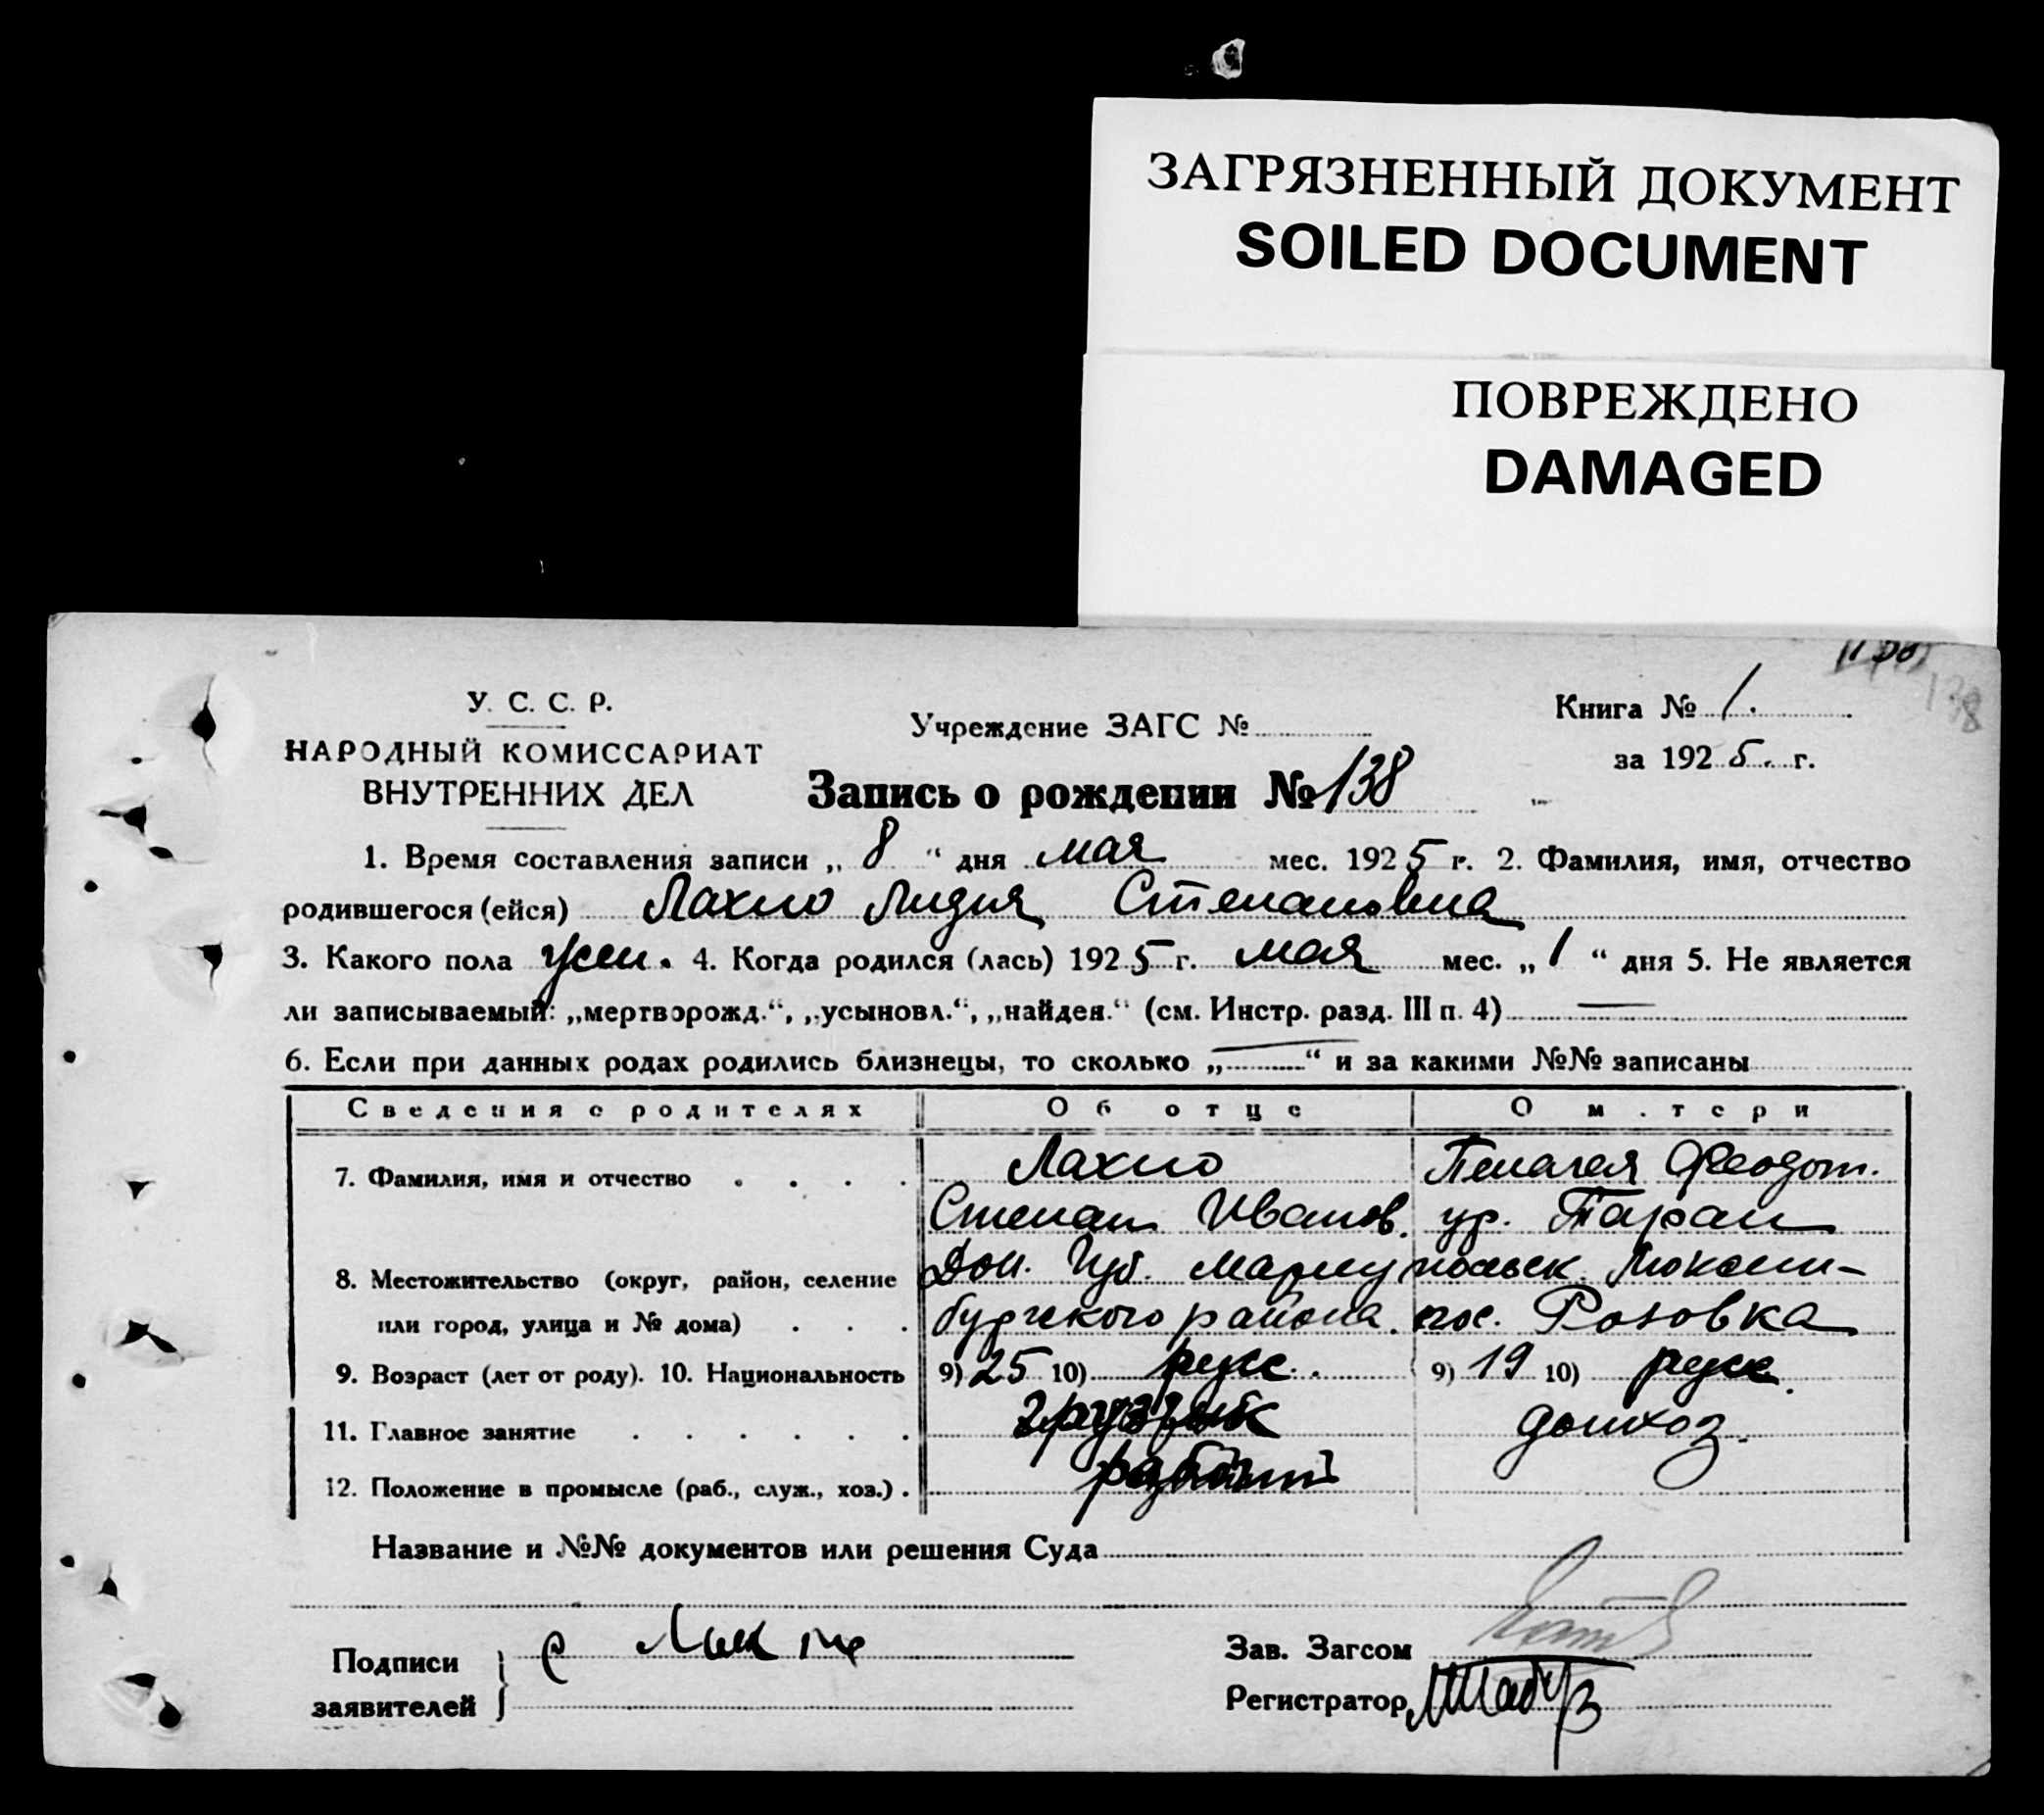 ЗАГРЯЗНЕННЫЙ ДОКУМЕНТ
SOILED DOCUMENT
ПОВРЕЖДЕНО
DAMAGED
138
У. С. С. Р.
НАРОДНЫЙ КОМИССАРИАТ
ВНУТРЕННИХ ДЕЛ
Учреждение ЗАГС №
Книга № 1.
за 1925. г.
Запись о рождении № 138
1. Время составления записи „ 8 “ дня мая мес. 1925 г. 2. Фамилия, имя, отчество
родившегося (ейся) Лахно Лидия Степановна
3. Какого пола жен. 4. Когда родился (лась) 1925 г. мая мес. „ 1 “ дня 5. Не является
ли записываемый: „мертворожд.“, „усыновл.“, „найден.“ (см. Инстр. разд. III п. 4) —
6. Если при данных родах родились близнецы, то сколько „ — “ и за какими №№ записаны
Сведения о родителях Об отце О м.тери
7. Фамилия, имя и отчество Лахно Пелагея Феодот.
Степан Иванов. ур. Таран
8. Местожительство (округ, район, селение Дон. Губ. Мариупольск. Люксем-
или город, улица и № дома) бургского района. пос. Розовка
9. Возраст (лет от роду). 10. Национальность 9) 25 10) русс. 9) 19 10) русск.
11. Главное занятие грузчик домхоз.
12. Положение в промысле (раб., служ., хоз.)
Название и №№ документов или решения Суда
Подписи
заявителей
С
Зав. Загсом
Регистратор